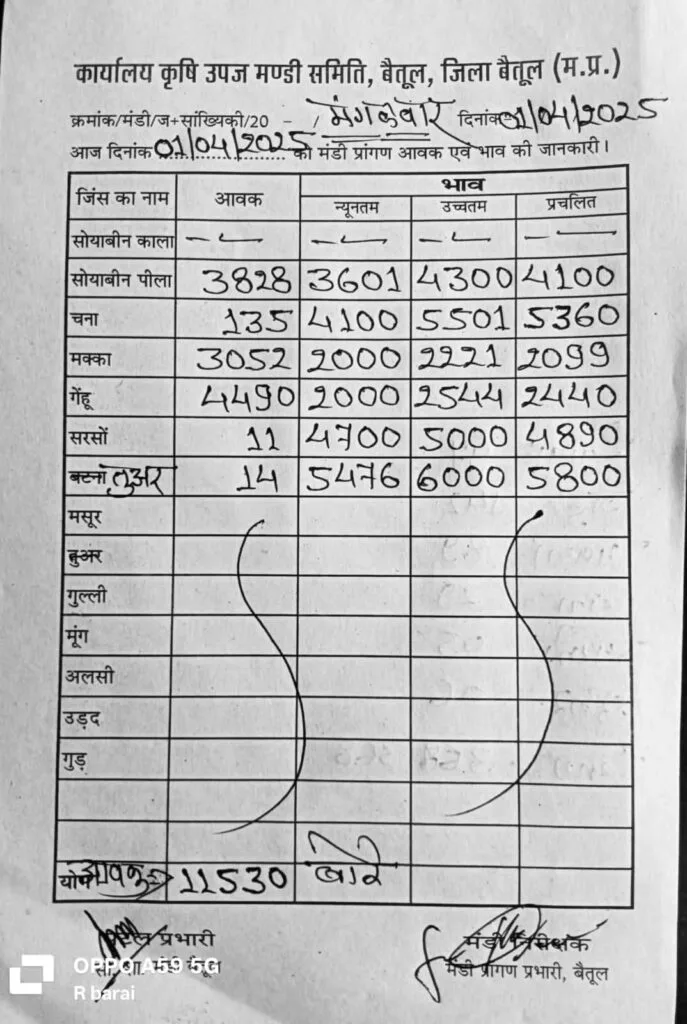 कार्यालय कृषि उपज मण्डी समिति, बैतूल, जिला बैतूल (म.प्र.)
क्रमांक/मंडी/ज+सांख्यिकी/20 - / मंगळवार दिनांक 01/04/2025
आज दिनांक 01/04/2025 को मंडी प्रांगण आवक एवं भाव की जानकारी।
जिंस का नाम आवक भाव
न्यूनतम उच्चतम प्रचलित
सोयाबीन काला -- -- -- --
सोयाबीन पीला 3828 3601 4300 4100
चना 135 4100 5501 5360
मक्का 3052 2000 2221 2099
गेंहू 4490 2000 2544 2440
सरसों 11 4700 5000 4890
बटना तुअर 14 5476 6000 5800
मसूर
तुअर
गुल्ली
मूंग
अलसी
उड़द
गुड़
योग आवक 11530 बोरे
प्रभारी मंडी निरीक्षक
मंडी बैतूल मंडी प्रांगण प्रभारी, बैतूल
OPPO A59 5G
R barai